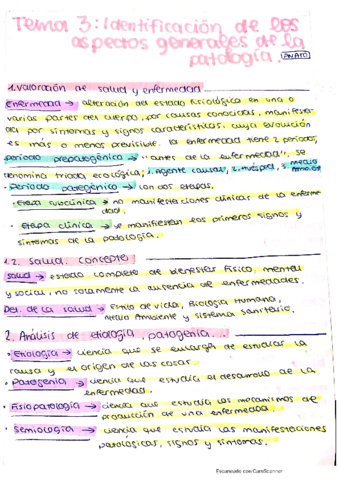 Tema 3: Identificación de los
aspectos generales de la
patología. ANATO
1. Valoración de salud y enfermedad
Enfermedad → alteración del estado fisiológica en una o
varias partes del cuerpo, por causas conocidas, manifesta-
da por síntomas y signos característicos, cuya evolución
es más o menos previsible. la enfermedad tiene 2 periodos,
periodo prepatogénico → "antes de la enfermedad", se
denomina triada ecológica; 1. Agente causal, 2. Huésped, 3. medio
• Periodo patogénico → con dos etapas.
• Etapa subclínica → no manifestaciones clínicas de la enferme
dad.
• Etapa clínica → se manifiestan los primeros signos y
síntomas de la patología.
1.2. Salud. Concepto:
Salud → estado completo de bienestar físico, mental
y social, no solamente la ausencia de enfermedades.
De la salud → Estilo de vida, Biología Humana,
Medio Ambiente y Sistema sanitario.
2. Análisis de etiología, patogenia...
• Etiología → ciencia que se encarga de estudiar la
causa y el origen de las cosas.
• Patogenia → ciencia que estudia el desarrollo de la
enfermedad.
• Fisiopatología → ciencia que estudia los mecanismos de
producción de una enfermedad.
• Semiología → ciencia que estudia las manifestaciones
patológicas, signos y síntomas.
Escaneado con CamScanner